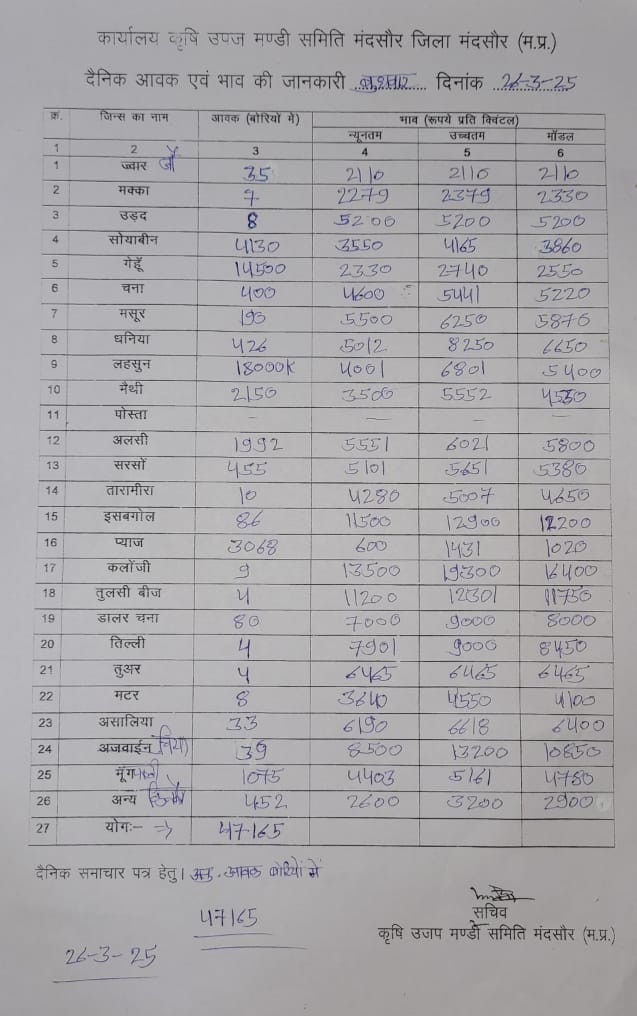 कार्यालय कृषि उपज मण्डी समिति मंदसौर जिला मंदसौर (म.प्र.)
दैनिक आवक एवं भाव की जानकारी बुधवार दिनांक 26-3-25
क्र. जिन्स का नाम आवक (बोरियों में) भाव (रूपये प्रति क्विंटल)
न्यूनतम उच्चतम मॉडल
1 2 3 4 5 6
1 ज्वार जौ 35 2110 2110 2110
2 मक्का 7 2279 2379 2330
3 उड़द 8 5200 5200 5200
4 सोयाबीन 4130 3550 4165 3860
5 गेहूँ 14500 2330 2740 2550
6 चना 400 4600 5441 5220
7 मसूर 190 5500 6250 5876
8 धनिया 426 5012 8250 6650
9 लहसुन 18000K 4001 6801 5400
10 मैथी 2150 3500 5552 4550
11 पोस्ता – – – –
12 अलसी 1992 5551 6021 5800
13 सरसों 455 5101 5651 5380
14 तारामीरा 10 4280 5007 4650
15 इसबगोल 86 11500 12900 12200
16 प्याज 3068 600 1431 1020
17 कलोंजी 9 13500 19300 16400
18 तुलसी बीज 4 11200 12301 11750
19 डालर चना 80 7000 9000 8000
20 तिल्ली 4 7901 9000 8450
21 तुअर 4 6465 6465 6465
22 मटर 8 3640 4550 4100
23 असालिया 33 6190 6618 6400
24 अजवाईन 39 8500 13200 10850
25 मूंगफली 1075 4403 5161 4780
26 अन्य 452 2600 3200 2900
27 योगः– → 47165
दैनिक समाचार पत्र हेतु। अनु. आवक बोरियों में
47165
सचिव
कृषि उजप मण्डी समिति मंदसौर (म.प्र.)
26-3-25